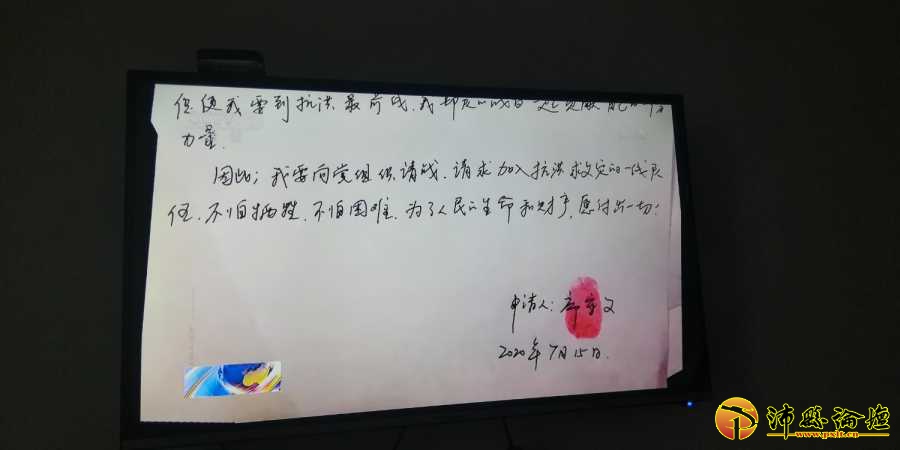 但使我要到抗洪最前线,我却
力量.
因此,我要向党组织请战,请求加入抗洪救灾的一线队
伍,不怕牺牲,不怕困难,为了人民的生命和财产,愿付出一切!
申请人:
2020年7月15日.
沛县论坛
www.pxlt.cn